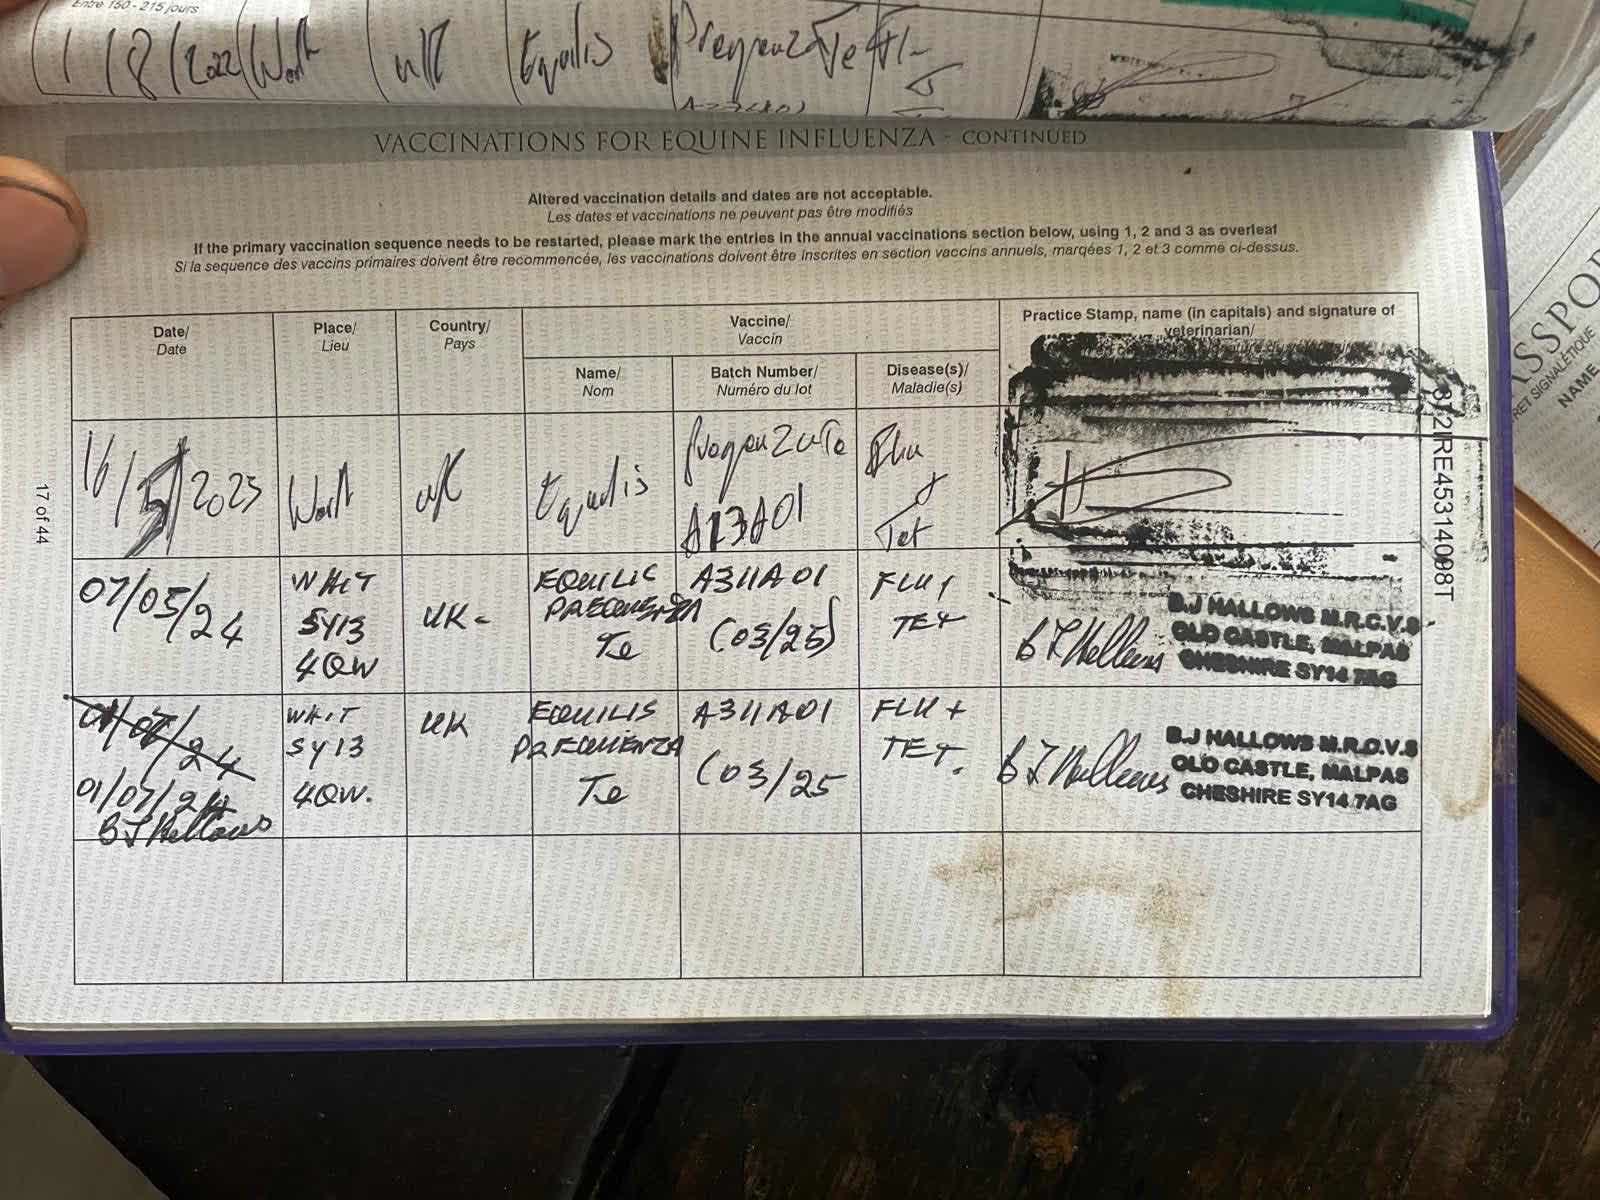 Entre 150 - 215 jours
1/8/2022 Equilis
VACCINATIONS FOR EQUINE INFLUENZA - CONTINUED
Altered vaccination details and dates are not acceptable.
Les dates et vaccinations ne peuvent pas être modifiés
If the primary vaccination sequence needs to be restarted, please mark the entries in the annual vaccinations section below, using 1, 2 and 3 as overleaf
Si la sequence des vaccins primaires doivent être recommencée, les vaccinations doivent être inscrites en section vaccins annuels, marqées 1, 2 et 3 comme ci-dessus.
Date/
Date
Place/
Lieu
Country/
Pays
Vaccine/
Vaccin
Name/
Nom
Batch Number/
Numéro du lot
Disease(s)/
Maladie(s)
Practice Stamp, name (in capitals) and signature of
veterinarian/
16/5/2023
UK
Equilis
A173A01
Flu
Tet
07/05/24
WHIT
SY13
4QW
UK
EQUILIS
PREQUENZA
Te
A311A01
(03/25)
FLU +
TET
B J Hallows
B.J HALLOWS M.R.C.V.S
OLD CASTLE, MALPAS
CHESHIRE SY14 7AG
01/07/24
B J Hallows
WHIT
SY13
4QW.
UK
EQUILIS
PREQUENZA
Te
A311A01
(03/25
FLU +
TET.
B J Hallows
B.J HALLOWS M.R.C.V.S
OLD CASTLE, MALPAS
CHESHIRE SY14 7AG
17 of 44
372IRE45314098T
NAME